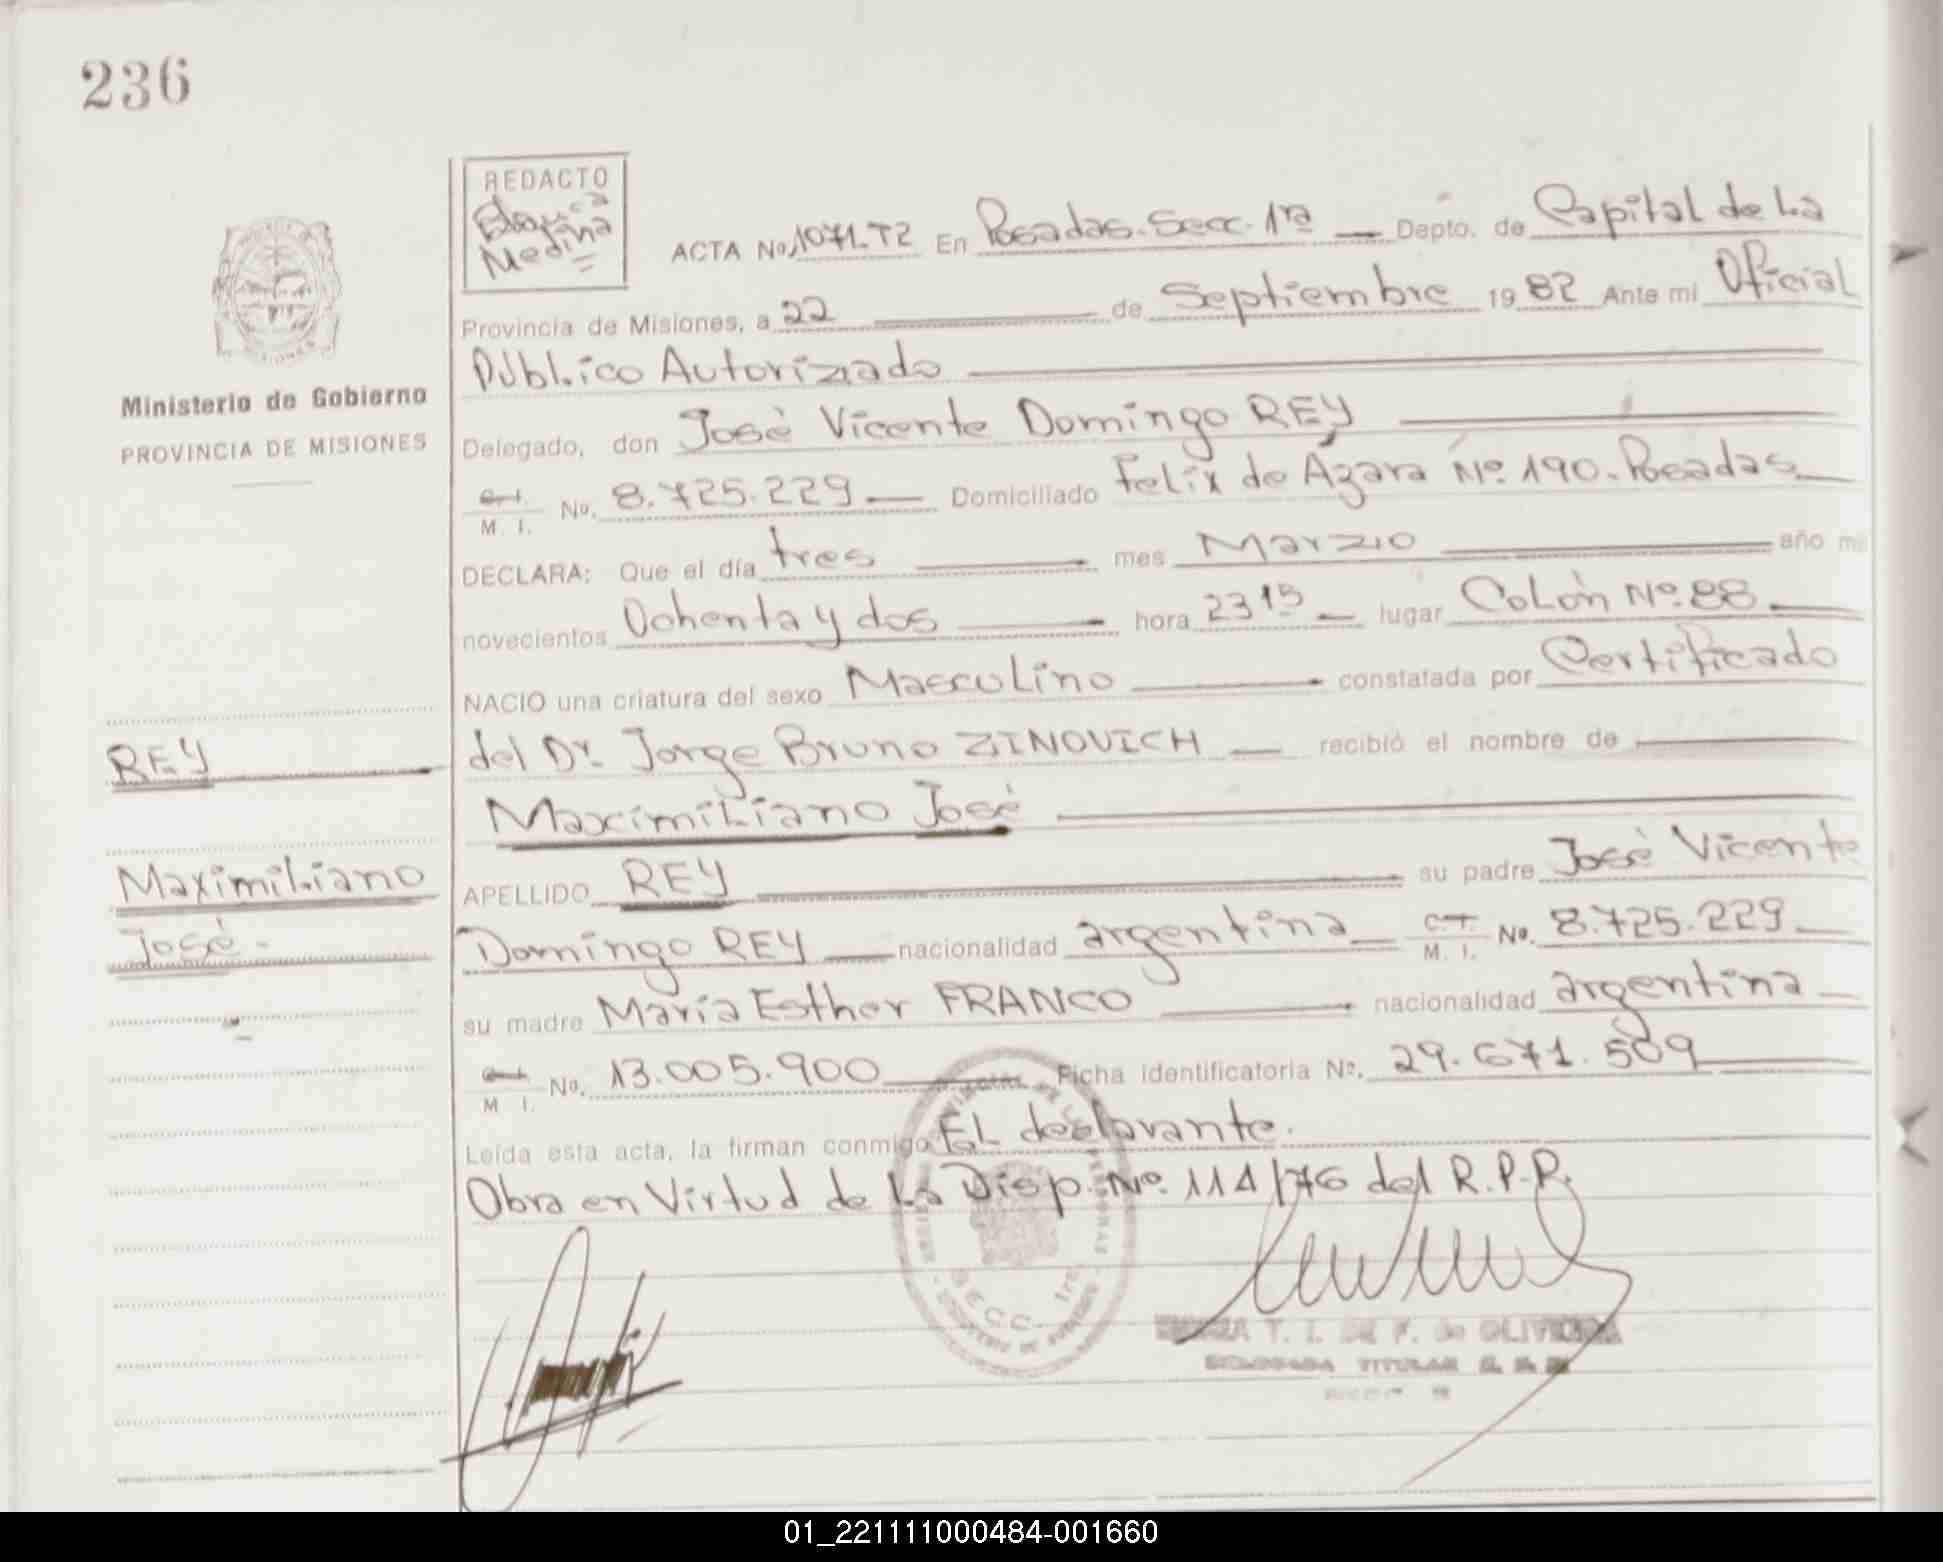 236
REDACTO
Medina
ACTA No. 1071.T2 En Posadas. Secc. 1ra Depto. de Capital de La
Provincia de Misiones, a 22 de Septiembre 1982 Ante mi Oficial
Público Autorizado
Ministerio de Gobierno
PROVINCIA DE MISIONES
Delegado, don José Vicente Domingo REY
M. I. No. 8.725.229 Domiciliado Felix de Azara Nº 190. Posadas
DECLARA: Que el día tres mes Marzo año mil
novecientos Ochenta y dos hora 23 15 lugar Colón Nº 88
NACIO una criatura del sexo Masculino constatada por Certificado
del Dr. Jorge Bruno ZINOVICH recibió el nombre de
Maximiliano José
APELLIDO REY su padre José Vicente
Domingo REY nacionalidad argentina M. I. No. 8.725.229
su madre María Esther FRANCO nacionalidad argentina
M I. No. 13.005.900 Ficha identificatoria Nº. 29.671.509
Leída esta acta, la firman conmigo El declarante.
Obra en Virtud de La Disp. Nº. 114/76 del R.P.R.
REY
Maximiliano
José.
SECC. 1ra.
T. I. DE F. de OLIVEIRA
TITULAR
01_221111000484-001660